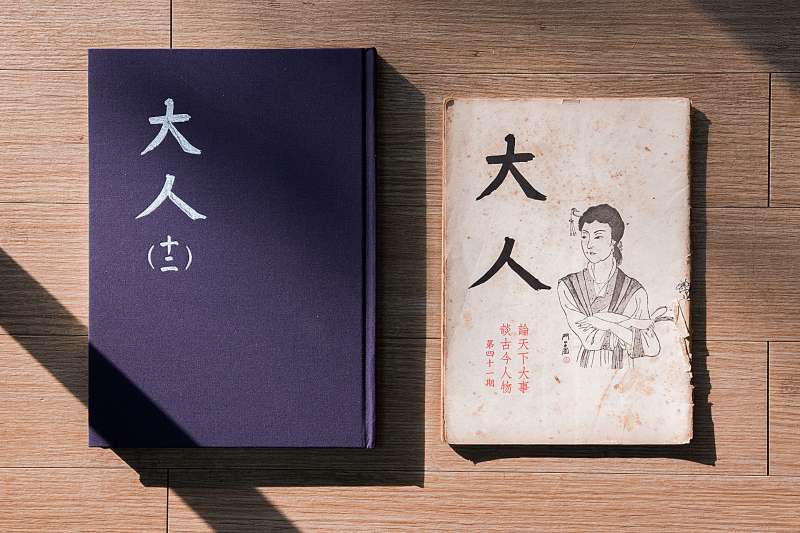 大人
（十二）
大人
論天下大事
談古今人物
第四十一期